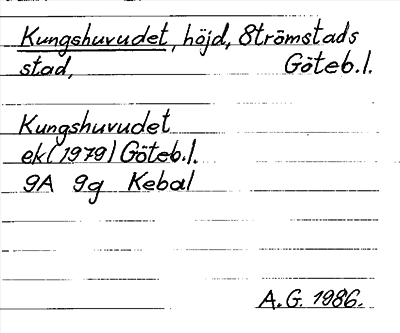 Kungshuvudet, höjd, Strömstads
stad, Göteb.l.
Kungshuvudet
ek(1979) Göteb.l.
9A 9g Kebal
A.G. 1986.